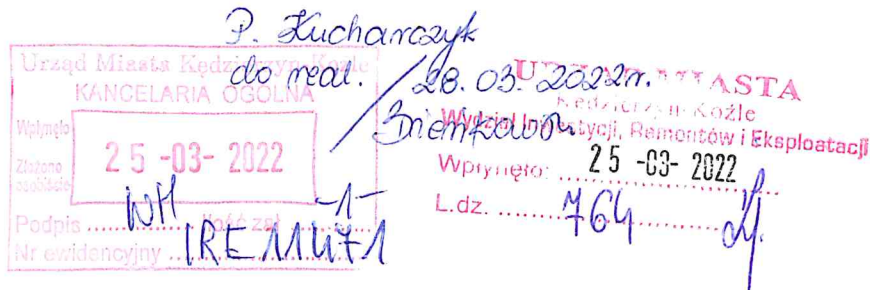 P. Kucharczyk
do real.
28.03.2022r.
Urząd Miasta Kędzierzyn-Koźle
KANCELARIA OGÓLNA
Wpłynęło
Złożono
osobiście
25 -03- 2022
WM
-1-
Podpis .......... Ilość zał. ..........
Nr ewidencyjny ..........
IRE 11471
URZĄD MIASTA
Kędzierzyn-Koźle
Wydział Inwestycji, Remontów i Eksploatacji
Wpłynęło: 25 -03- 2022
L.dz. .......... 764